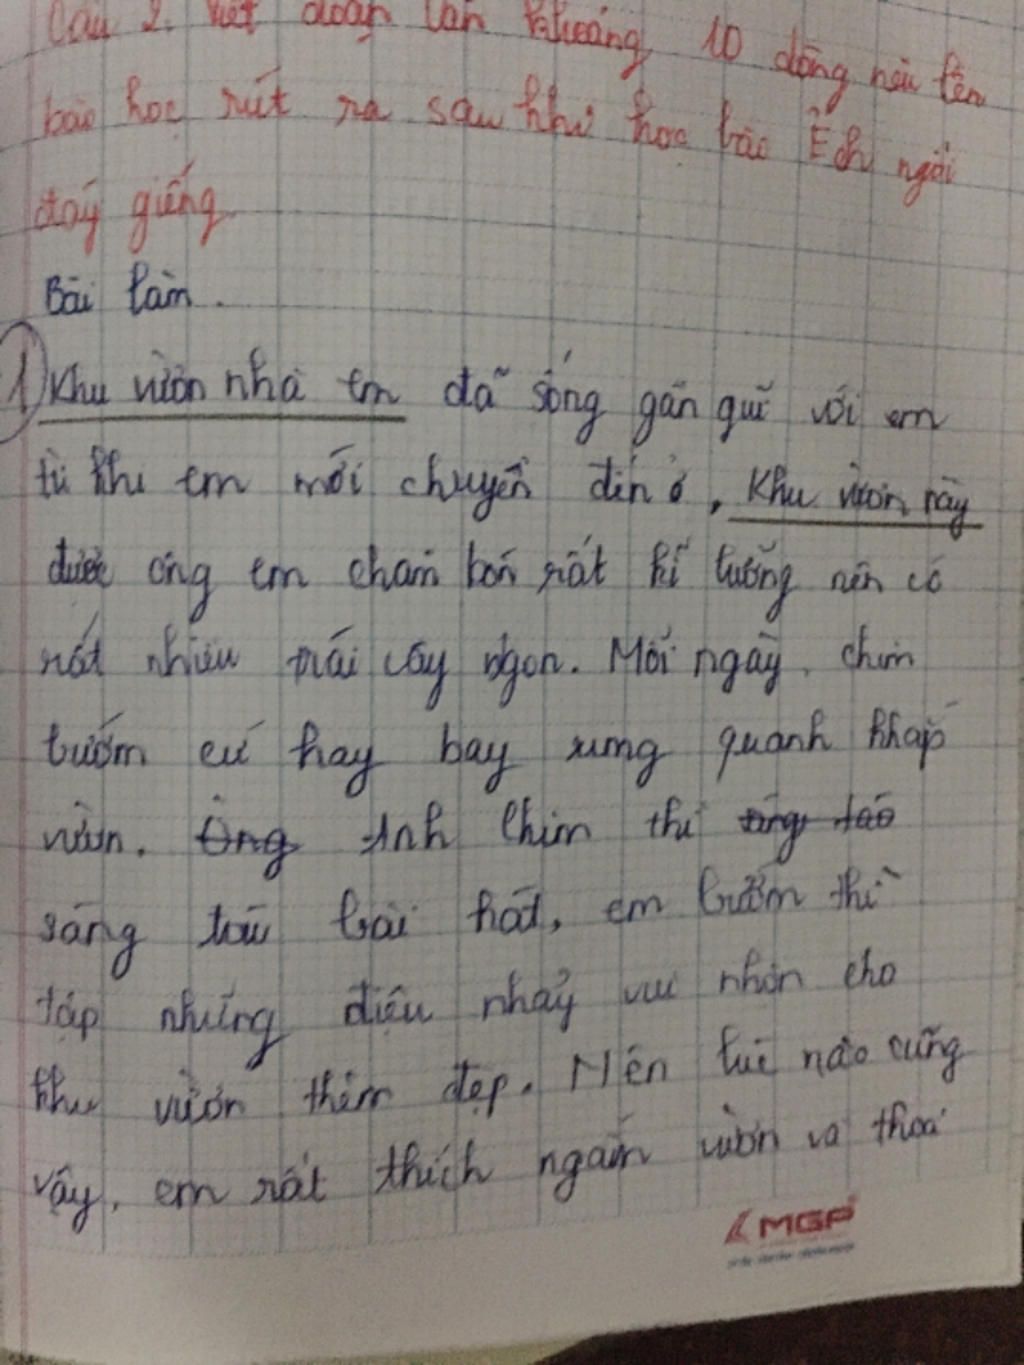 Câu 2. Viết đoạn văn khoảng 10 dòng nêu lên
bài học rút ra sau khi học bài Ếch ngồi
đáy giếng.
Bài làm.
1) Khu vườn nhà em đã sống gần guĩ với em
từ khi em mới chuyển đến ở, Khu vườn này
được ông em chăm bón rất kĩ lưỡng nên có
rất nhiều trái cây ngon. Mỗi ngày, chim
bướm cứ hay bay xung quanh khắp
vườn. Ông Anh Chim thì
sáng tác bài hát, em bướm thì
tập những điệu nhảy vui nhộn cho
khu vườn thêm đẹp. Nên lúc nào cũng
vậy, em rất thích ngắm vườn và thoả
MGP